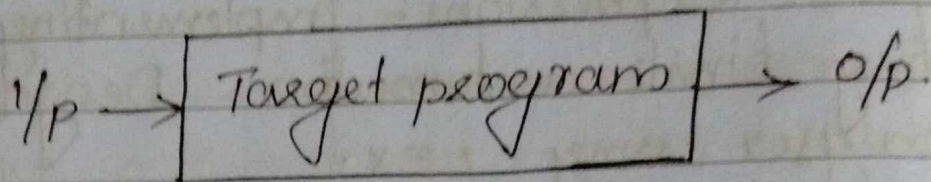 I/p → Target program → O/p.